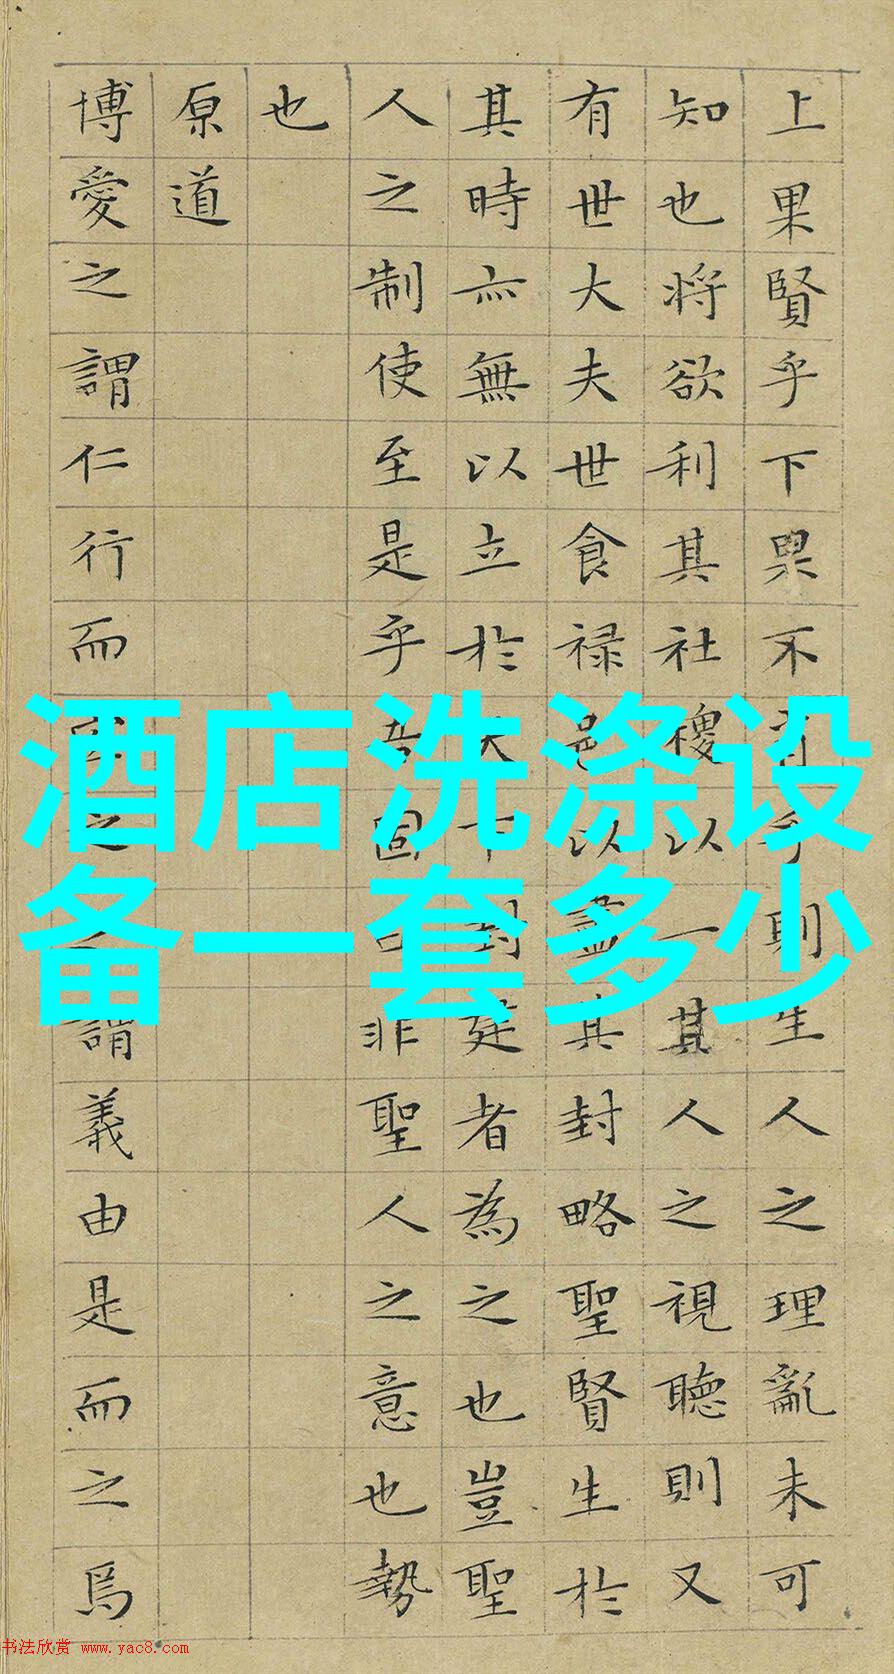 上果賢乎下果不肖乎則生人之理亂未可
知也將欲利其社稷以一其人之視聽則又
有世大夫世食禄邑以盡其封略聖賢生於
其時亦無以立於天下封建者為之也豈聖
人之制使至是乎吾固曰非聖人之意也勢
也
原道
博愛之謂仁行而之謂義由是而之焉
酒店洗涤设
备一套多少
书法欣赏 www.yac8.com